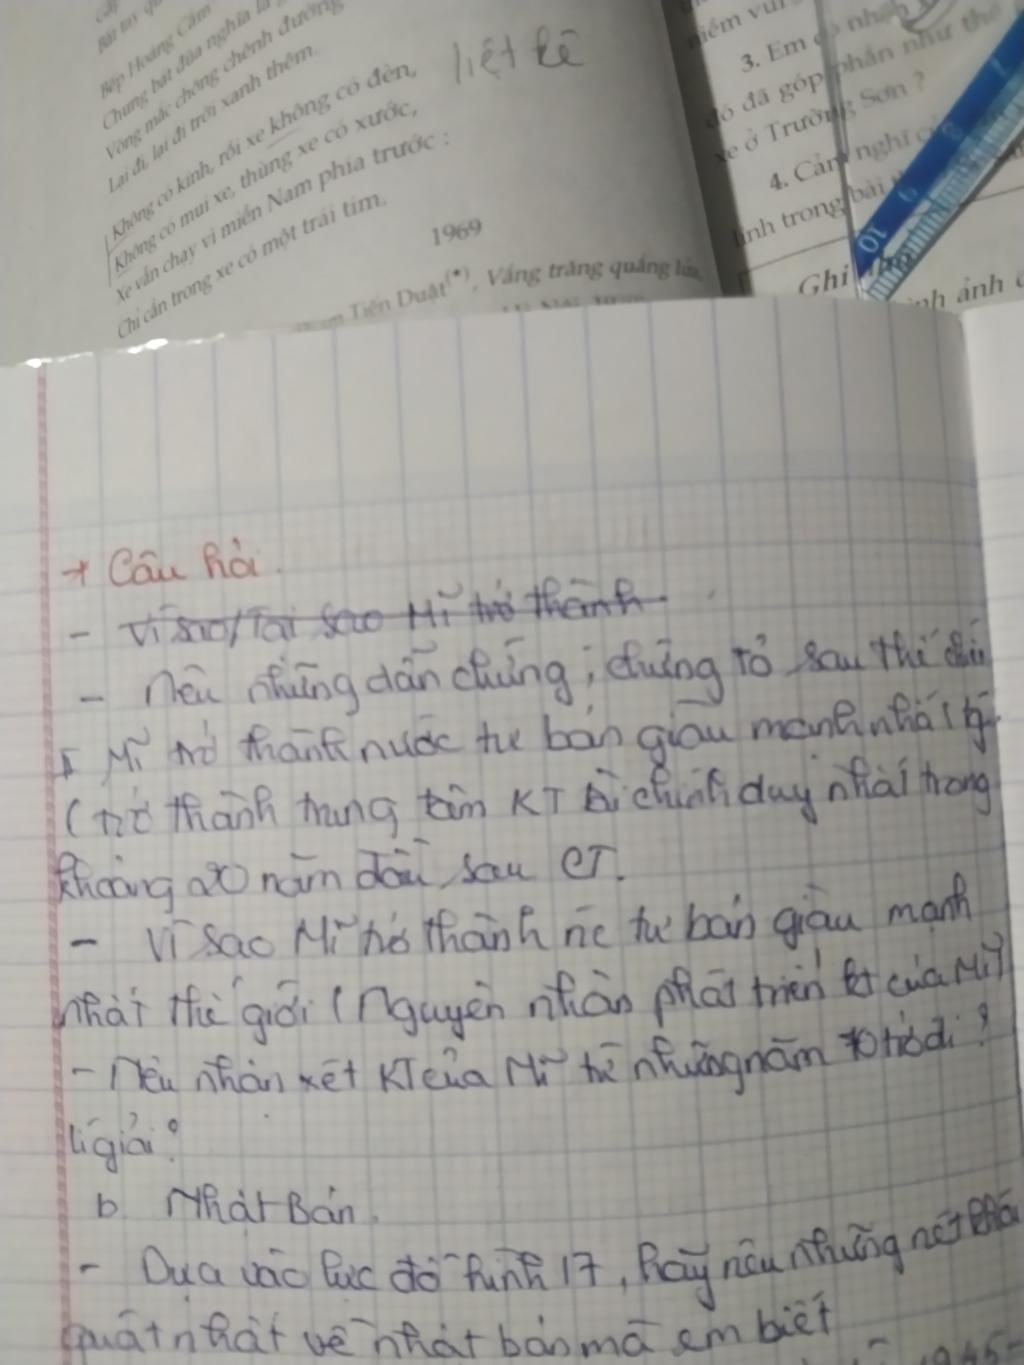 Bắt tay
Bếp Hoàng Cầm
Chung bát đũa nghĩa là
Võng mắc chông chênh đường
Lại đi, lại đi trời xanh thêm.
Không có kính, rồi xe không có đèn,
Không có mui xe, thùng xe có xước,
Xe vẫn chạy vì miền Nam phía trước :
Chỉ cần trong xe có một trái tim.
liệt kê
1969
Tiến Duật(*), Vầng trăng quầng lửa,
niềm vui
3. Em có nhận
đó đã góp phần như thế
xe ở Trường Sơn ?
4. Cảm nghĩ
lính trong bài
Ghi nhớ
ảnh
9
10
+ Câu hỏi.
- Vì sao/Tại sao Mĩ trở thành
- Nêu những dẫn chứng, chứng tỏ sau thế chiến
Mĩ trở thành nước tư bản giàu mạnh nhất tg
(trở thành trung tâm KT tài chính duy nhất trong
khoảng 20 năm đầu sau CT.
- Vì sao Mĩ trở thành nc tư bản giàu mạnh
nhất thế giới (Nguyên nhân phát triển kt của Mĩ)
- Nêu nhận xét KT của Mĩ từ những năm 70 trở đi ?
lí giải ?
b. Nhật Bản.
- Dựa vào lược đồ hình 17, hãy nêu những nét khái
quát nhất về nhật bản mà em biết
1945-